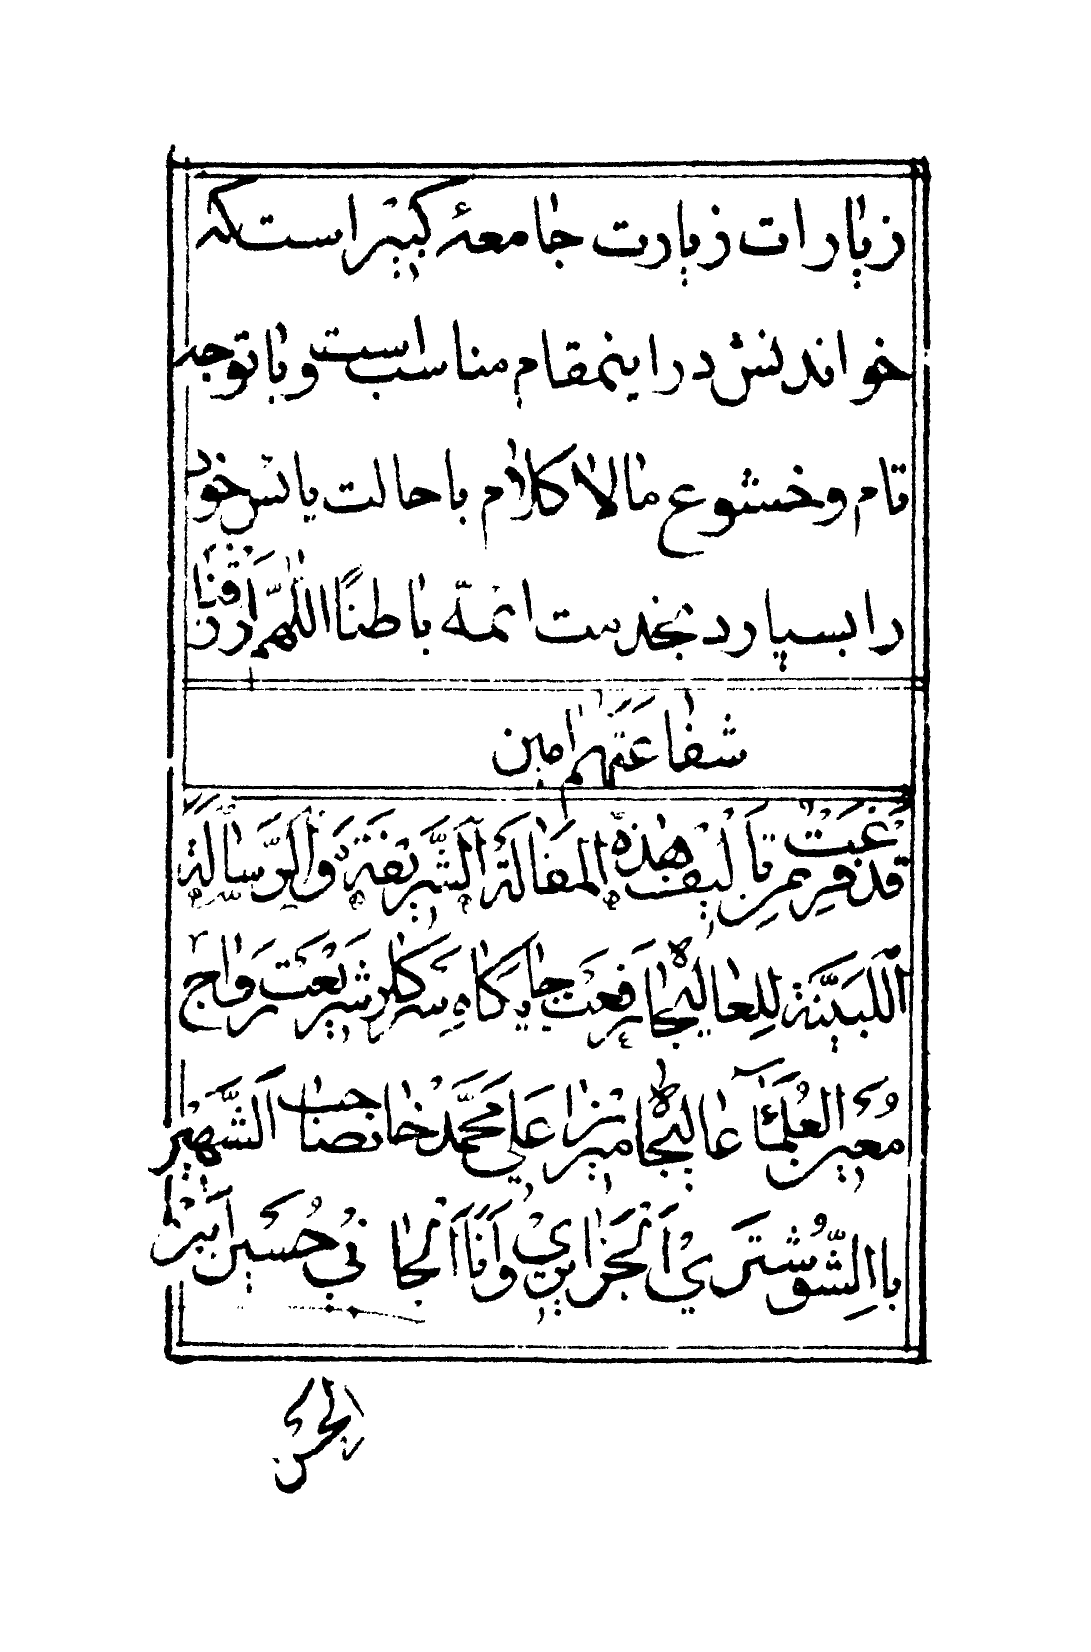 زیارات زیارت جامعهٔ کبیر است که
خواندنش در اینمقام مناسب است و با توجه
تام و خشوع مالاکلام با حالت یأس خود
را بسپارد بخدمت ائمّه باطناً اللّٰهمّ ارزقنا
شفاعَتَهم امین
قد فرغت من تألیف هٰذه المقالة الشّریفة و الرّسالة
اللبیّنة للعالیجاه رفعت جایگاه سرکار شریعتمدار
مُعین العلمآء عالیجاه میرزا علی محمّد خانصاحب الشّهیر
با الشّوشتری الجزایری و انا الجانی حُسین ابن
الحسن